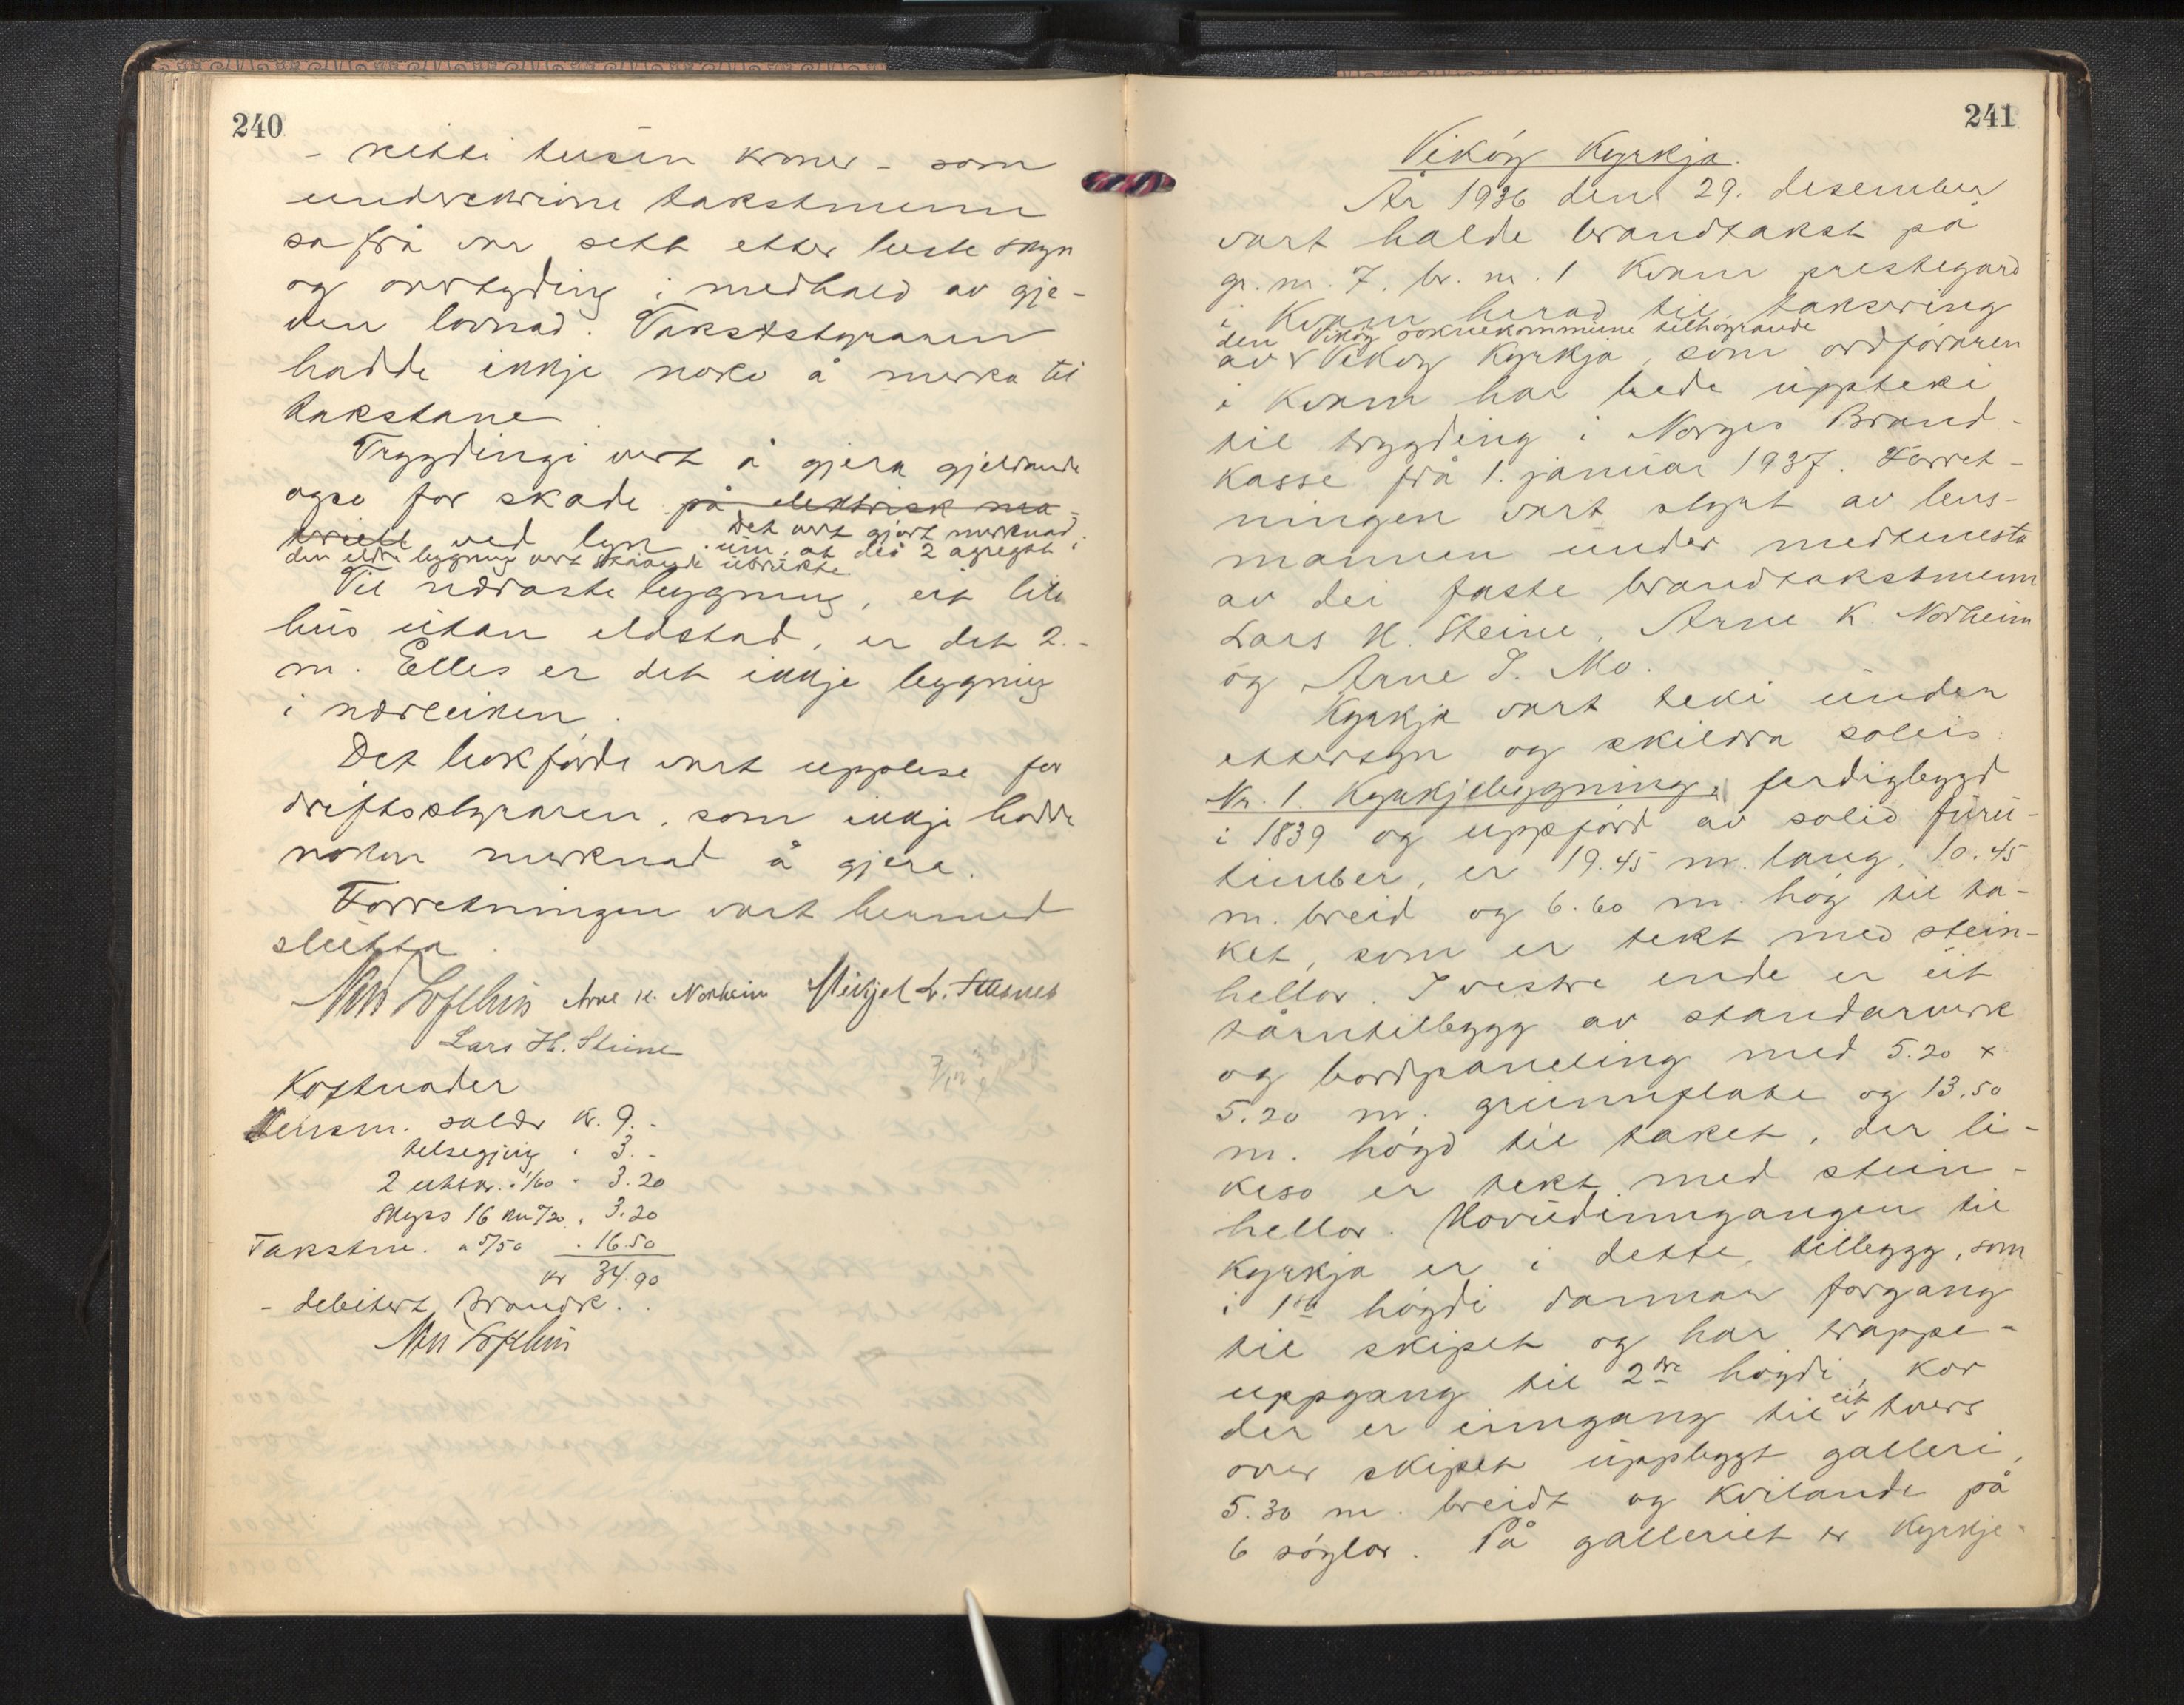 240
- nitti tusen kroner - som
underskrivne takstmenn
sa frå var sett etter beste skyn
og overtyding i medhald av gje-
ven lovnad. Takststyraren
hadde ikkje noko å merka til
takstane.
Tryggdingi vert å gjera gjeldande
ogso for skade på elektrisk ma-
triell ved lyn. Det vert gjort merknad
um, at dei 2 agregat i
den eldre bygning vert ståande ubrukte.
Til næraste bygning, eit lite
hus utan eldstad, er det 2.-
m. Elles er det ikkje bygning
i nærleiken.
Det bokførde vart upplese for
driftsstyraren, som ikkje hadde
nokon merknad å gjera.
Forretningen vart hermed
slutta.
Arne K. Norheim
Lars H. Steine
Kostnader
Lensm. saldr kr. 9.-
telsegjing " 3.-
2 utskr. à 1/60 " 3.20
Skyss 16 km 0/20 " 3.20
Takstm. à 5/50 " 16.50
kr 34.90
- debitert Brandk.
241
Vikøy Kyrkja.
År 1936 den 29. desember
vart halde brandtakst på
gr. nr. 7, br. nr. 1 Kvam prestegard
i Kvam herad til taksering
den Vikøy soknekommune tilhøyrande
av Vikøy Kyrkja, som ordføraren
i Kvam har bede uppteki
til trygding i Norges Brand-
kasse frå 1. januar 1937. Forret-
ningen vart styrt av lens-
mannen under medtenesta
av dei faste brandtakstmenn
Lars H. Steine, Arne K. Norheim
og Arne J. Mo.
Kyrkja vart teki under
ettersyn og skildra soleis:
Nr. 1. Kyrkjebygning, ferdigbygd
i 1839 og uppførd av solid furu-
timber, er 19.45 m. lang, 10.45
m. breid og 6.60 m. høg til ta-
ket, som er tekt med stein-
hellor. I vestre ende er eit
tårntilbygg av standarverk
og bordpaneling med 5.20 x
5.20 m. grunnflate og 13.50
m. høgd til taket, der li-
keso er tekt med stein-
hellor. Hovudinngangen til
Kyrkja er i dette tilbygg, som
i 1ste høgdi dannar forgang
til skipet og har trappe-
uppgang til 2dre høgdi, kor
der er inngang til eit tvers
over skipet uppbyggt galleri,
5.30 m. breidt og kvilande på
6 søylor. På galleriet er Kyrkje-